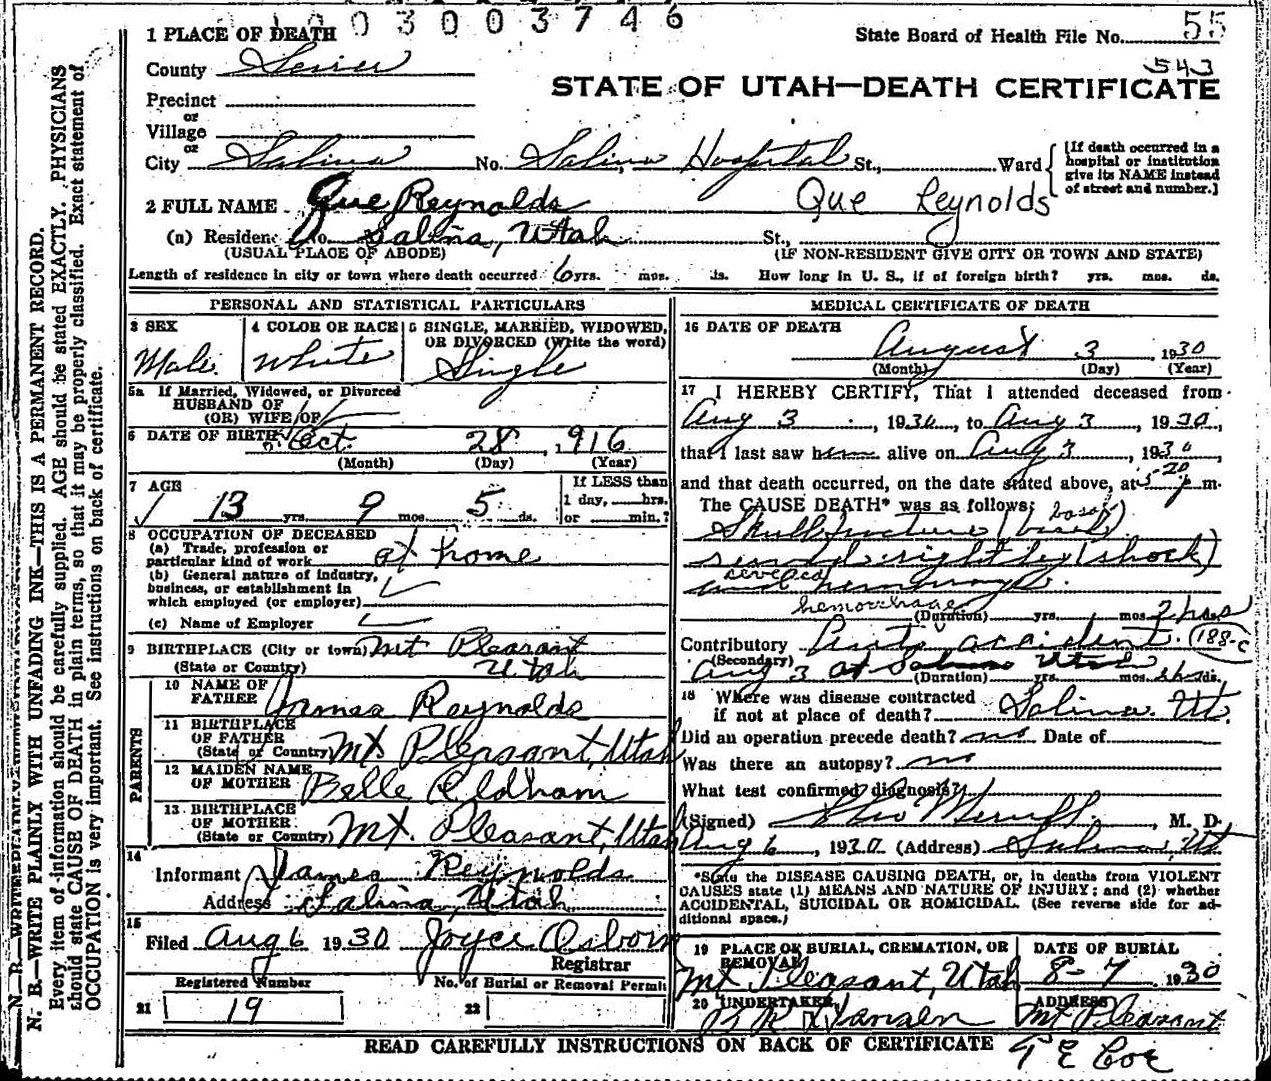 1003003746
1 PLACE OF DEATH
State Board of Health File No. 55
543
County Sevier
STATE OF UTAH—DEATH CERTIFICATE
Precinct
or
Village
or
City Salina No. Salina Hospital St., Ward
[If death occurred in a hospital or institution give its NAME instead of street and number.]
2 FULL NAME Que Reynolds Que Reynolds
(a) Residence No. Salina, Utah St.,
(USUAL PLACE OF ABODE) (IF NON-RESIDENT GIVE CITY OR TOWN AND STATE)
Length of residence in city or town where death occurred 6 yrs. mos. ds. How long in U. S., if of foreign birth? yrs. mos. ds.
PERSONAL AND STATISTICAL PARTICULARS
3 SEX Male
4 COLOR OR RACE White
5 SINGLE, MARRIED, WIDOWED, OR DIVORCED (Write the word) Single
5a If Married, Widowed, or Divorced
HUSBAND OF
(OR) WIFE OF
6 DATE OF BIRTH Oct. 28, 1916
(Month) (Day) (Year)
7 AGE 13 yrs. 9 mos. 5 ds.
If LESS than 1 day, hrs. or min.?
8 OCCUPATION OF DECEASED
(a) Trade, profession or particular kind of work at home
(b) General nature of industry, business, or establishment in which employed (or employer)
(c) Name of Employer
9 BIRTHPLACE (City or town) Mt Pleasant
(State or Country) Utah
PARENTS
10 NAME OF FATHER James Reynolds
11 BIRTHPLACE OF FATHER (State or Country) Mt Pleasant, Utah
12 MAIDEN NAME OF MOTHER Belle Oldham
13 BIRTHPLACE OF MOTHER (State or Country) Mt. Pleasant, Utah
14
Informant James Reynolds
Address Salina, Utah
15
Filed Aug 6 1930 Joyce Osborn
Registrar
Registered Number No. of Burial or Removal Permit
21 19 22
MEDICAL CERTIFICATE OF DEATH
16 DATE OF DEATH
August 3, 1930
(Month) (Day) (Year)
17 I HEREBY CERTIFY, That I attended deceased from
Aug 3, 1930, to Aug 3, 1930,
that I last saw him alive on Aug 3, 1930,
and that death occurred, on the date stated above, at 5 20 p m.
The CAUSE DEATH* was as follows:
Skull fracture (basal) basal
severed right leg (shock)
severed
and hemorrhage.
hemorrhage
(Duration) yrs. mos. 2 hrs
Contributory Auto accident. 188-c
(Secondary) Aug 3 at Salina Utah
(Duration) yrs. mos. ds.
18 Where was disease contracted
if not at place of death? Salina Ut.
Did an operation precede death? no Date of
Was there an autopsy? no
What test confirmed diagnosis?
(Signed) , M. D.
Aug 6, 1930 (Address) Salina, Ut
*State the DISEASE CAUSING DEATH, or, in deaths from VIOLENT
CAUSES state (1) MEANS AND NATURE OF INJURY; and (2) whether
ACCIDENTAL, SUICIDAL OR HOMICIDAL. (See reverse side for ad-
ditional space.)
19 PLACE OF BURIAL, CREMATION, OR REMOVAL Mt Pleasant, Utah
DATE OF BURIAL 8-7 1930
20 UNDERTAKER Hansen
ADDRESS Mt Pleasant
READ CAREFULLY INSTRUCTIONS ON BACK OF CERTIFICATE
T E Coe
N. B.—WRITE PLAINLY WITH UNFADING INK—THIS IS A PERMANENT RECORD.
Every item of information should be carefully supplied. AGE should be stated EXACTLY. PHYSICIANS
should state CAUSE OF DEATH in plain terms, so that it may be properly classified. Exact statement of
OCCUPATION is very important. See instructions on back of certificate.